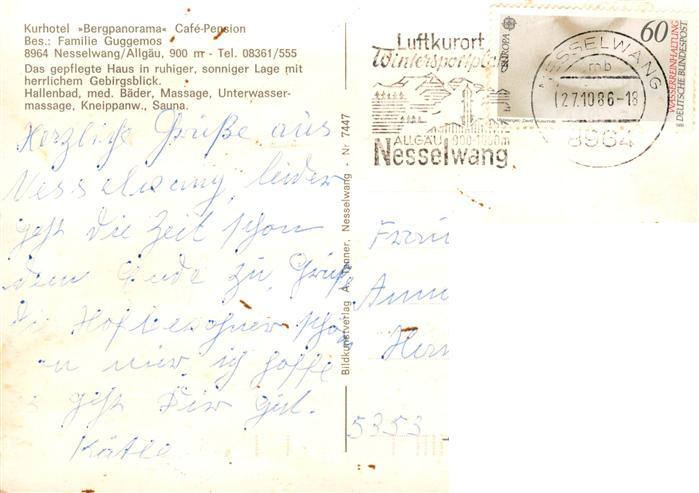 Kurhotel »Bergpanorama« Café-Pension
Bes.: Familie Guggemos
8964 Nesselwang/Allgäu, 900 m - Tel. 08361/555
Das gepflegte Haus in ruhiger, sonniger Lage mit
herrlichem Gebirgsblick.
Hallenbad, med. Bäder, Massage, Unterwasser-
massage, Kneippanw., Sauna.
Herzliche Grüße aus
Nesselwang, leider
geht die Zeit schon
dem Ende zu, Grüße
die Hofbeschner schon
mir ich hoffe
geht Dir gut.
Käthe
Bildkunstverlag A. Tanner, Nesselwang - Nr 7447
Luftkurort
Wintersportplatz
ALLGÄU 900-1600m
Nesselwang
EUROPA
60
WASSERREINHALTUNG
DEUTSCHE BUNDESPOST
NESSELWANG
mb
27.10.86-18
8964
Frau
Anna
Herr
5353